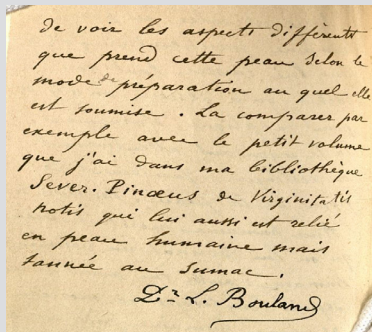 de voir les aspects différents
que prend cette peau selon le
mode de préparation au quel elle
est soumise. La comparer par
exemple avec le petit volume
que j'ai dans ma bibliothèque
Sever. Pinaeus de Virginitatis
notis qui lui aussi est relié
en peau humaine mais
tannée au sumac.
Dr L. Bouland